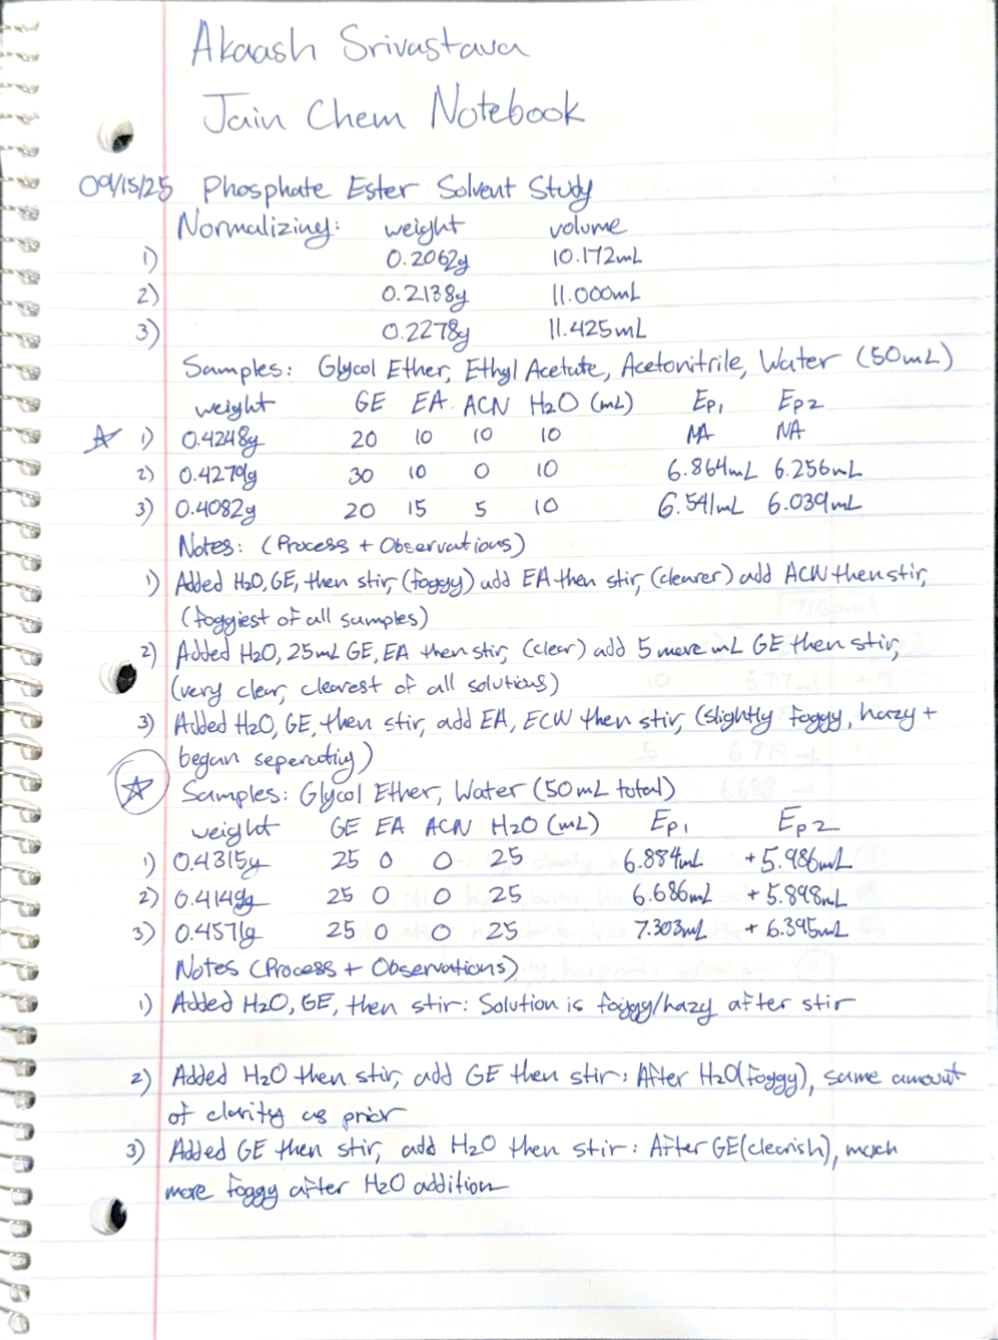 Akaash Srivastava
Jain Chem Notebook
09/15/25 Phosphate Ester Solvent Study
Normalizing: weight volume
1) 0.2062g 10.172mL
2) 0.2138g 11.000mL
3) 0.2278g 11.425mL
Samples: Glycol Ether, Ethyl Acetate, Acetonitrile, Water (50mL)
weight GE EA ACN H2O (mL) Ep1 Ep2
☆ 1) 0.4248g 20 10 10 10 NA NA
2) 30 10 0 10 6.864mL 6.256mL
3) 0.4082g 20 15 5 10 6.541mL 6.039mL
Notes: (Process + Observations)
1) Added H2O, GE, then stir, (foggy) add EA then stir, (clearer) add ACN then stir,
(foggiest of all samples)
2) Added H2O, 25mL GE, EA then stir, (clear) add 5 more mL GE then stir,
(very clear, clearest of all solutions)
3) Added H2O, GE, then stir, add EA, ECN then stir, (slightly foggy, hazy +
began seperating)
☆ Samples: Glycol Ether, Water (50mL total)
weight GE EA ACN H2O (mL) Ep1 Ep2
1) 0.4315g 25 0 0 25 6.884mL +5.986mL
2) 0.4149g 25 0 0 25 6.686mL +5.898mL
3) 0.4571g 25 0 0 25 7.303mL +6.395mL
Notes (Process + Observations)
1) Added H2O, GE, then stir: Solution is foggy/hazy after stir
2) Added H2O then stir, add GE then stir: After H2O(foggy), same amount
of clarity as prior
3) Added GE then stir, add H2O then stir: After GE(clearish), much
more foggy after H2O addition